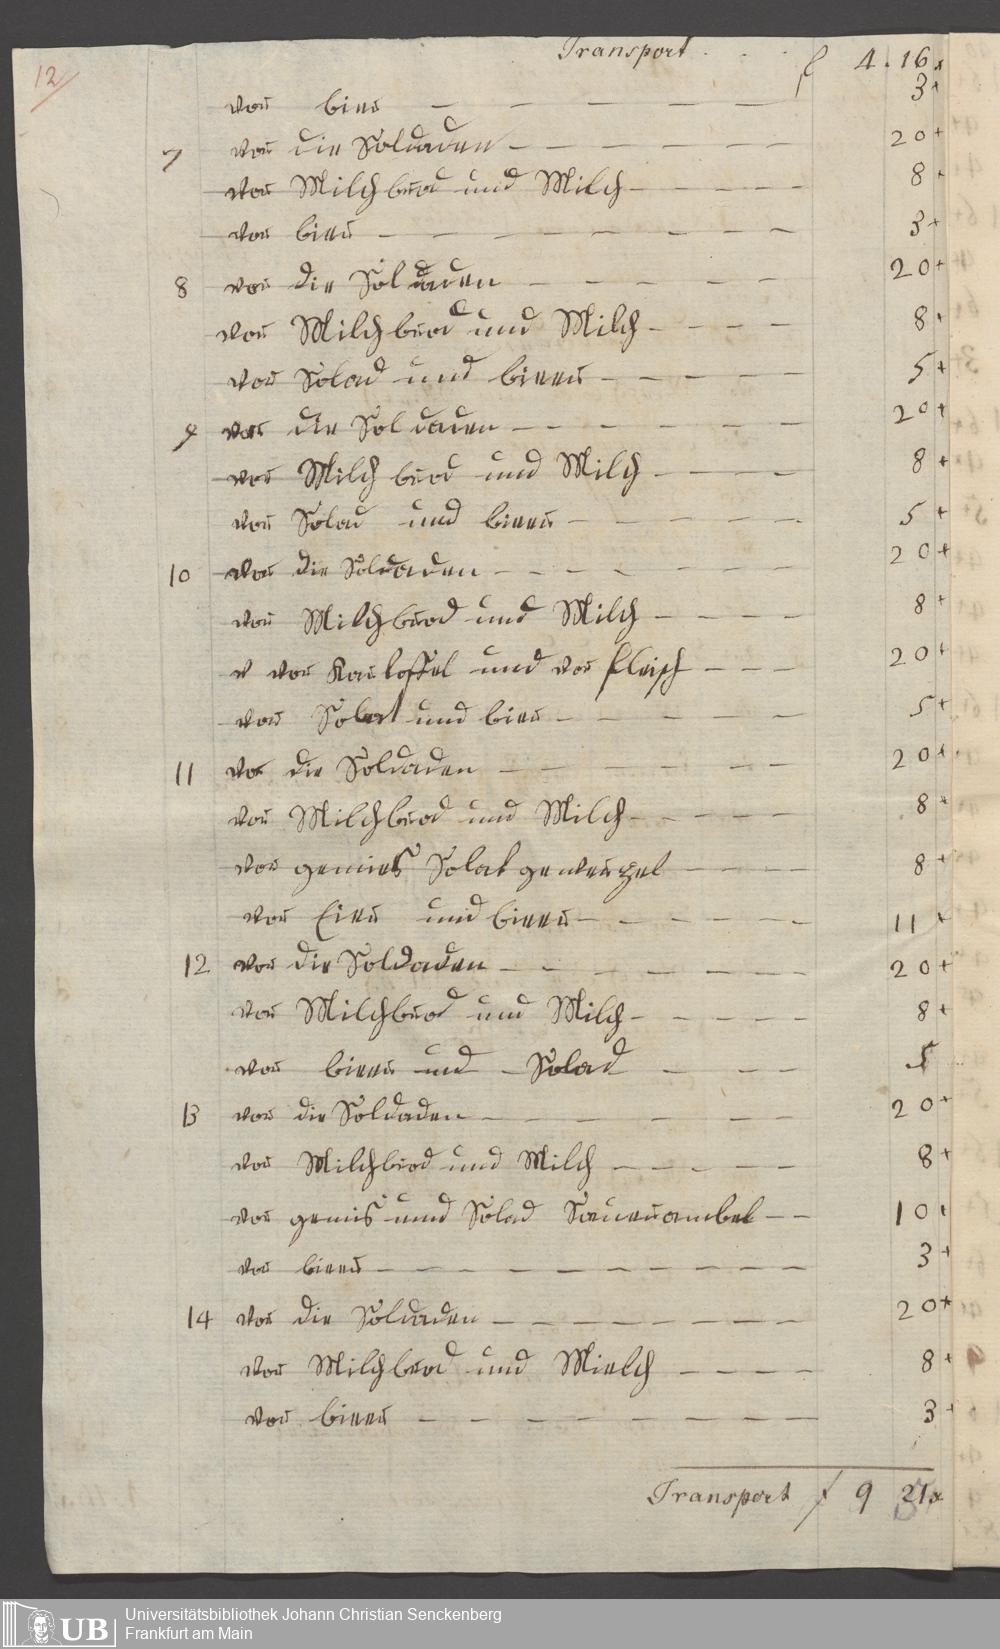 12
Transport . . . f 4. 16 x
vor bier — — — — — 3 x
7 vor die Soldaden — — — — — 20 x
vor Milchbrod und Milch — — — — 8 x
vor bier — — — — — — — 3 x
8 vor die Soldaden — — — — — 20 x
vor Milchbrod und Milch — — — — 8 x
vor Solad und bieer — — — — — 5 x
9 vor die Soldaden — — — — — 20 x
vor Milch brod und Milch — — — — 8 x
vor Solad und bieer — — — — — 5 x
10 vor die Soldaden — — — — — — 20 x
vor Milchbrod und Milch — — — — 8 x
v vor Kartoffel und vor fleisch — — — 20 x
vor Solat und bier — — — — — 5 x
11 vor die Soldaden — — — — — — 20 x
vor Milchbrod und Milch — — — — — 8 x
vor gemies Solat gewerzel — — — — 8 x
vor Eier und bieer — — — — — — 11 x
12 vor die Soldaden — — — — — — — 20 x
vor Milchbrod und Milch — — — — — 8 x
vor bieer und Solad — — — 5
13 vor die Soldaden — — — — — — 20 x
vor Milchbrod und Milch — — — — — 8 x
vor gemis und Solad — — 10 x
vor bieer — — — — — — — — — — 3 x
14 vor die Soldaden — — — — — — — — 20 x
vor Milchbrod und Mielch — — — — 8 x
vor bieer — — — — — — — — 3 x
Transport f 9 21 x
UB Universitätsbibliothek Johann Christian Senckenberg
Frankfurt am Main